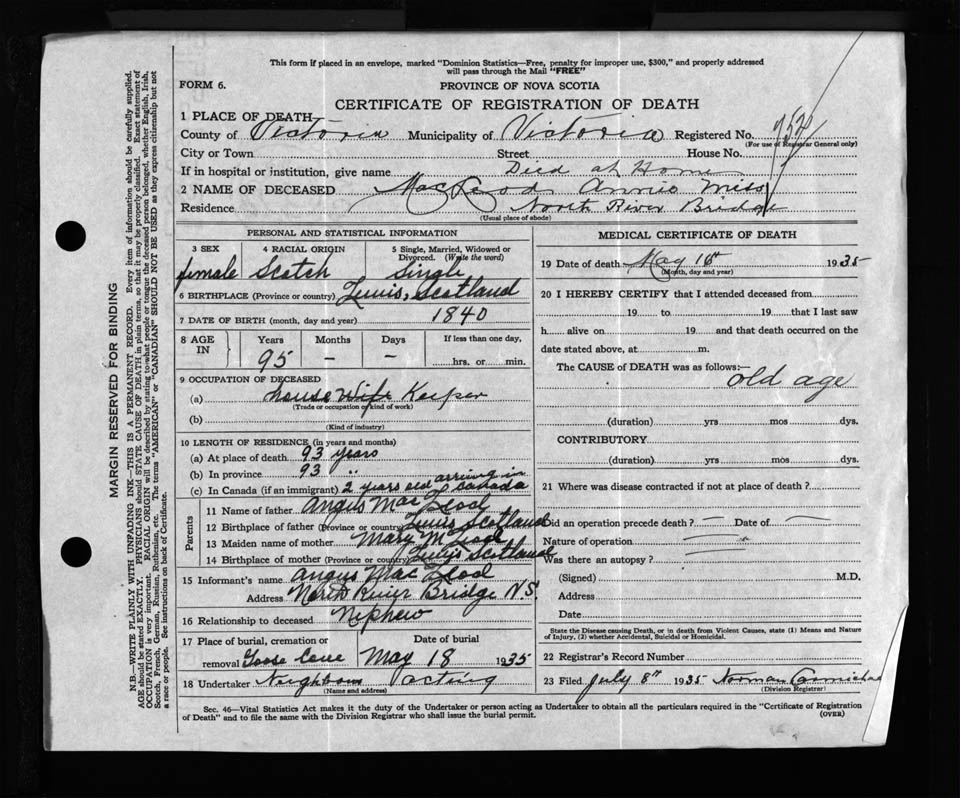 This form if placed in an envelope, marked "Dominion Statistics—Free, penalty for improper use, $300," and properly addressed
will pass through the Mail "FREE"
FORM 6.
PROVINCE OF NOVA SCOTIA
CERTIFICATE OF REGISTRATION OF DEATH
1 PLACE OF DEATH—
County of Victoria Municipality of Victoria Registered No.
(For use of Registrar General only)
City or Town Street House No.
If in hospital or institution, give name Died at Home
2 NAME OF DECEASED MacLeod Annie Miss
Residence North River Bridge
(Usual place of abode)
MARGIN RESERVED FOR BINDING
N.B.—WRITE PLAINLY WITH UNFADING INK—THIS IS A PERMANENT RECORD. Every item of information should be carefully supplied.
AGE should be stated EXACTLY. PHYSICIANS should STATE CAUSE OF DEATH in plain terms, so that it may be properly classified. Exact statement of
OCCUPATION is very important. RACIAL ORIGIN will be described by stating to what people or tongue the deceased person belonged, whether English, Irish,
Scotch, French, German, Russian, Ruthenian, etc. The terms "AMERICAN" or "CANADIAN" SHOULD NOT BE USED as they express citizenship but not
a race or people. See instructions on back of Certificate.
PERSONAL AND STATISTICAL INFORMATION
3 SEX 4 RACIAL ORIGIN 5 Single, Married, Widowed or
Divorced. (Write the word)
female Scotch Single
6 BIRTHPLACE (Province or country) Lewis, Scotland
7 DATE OF BIRTH (month, day and year) 1840
8 AGE IN Years Months Days If less than one day,
95 – – hrs. or min.
9 OCCUPATION OF DECEASED
(a) house Wife Keeper
(Trade or occupation or kind of work)
(b)
(Kind of industry)
10 LENGTH OF RESIDENCE (in years and months)
(a) At place of death 93 years
(b) In province 93 "
(c) In Canada (if an immigrant) 2 years old arriving in Canada
Parents
11 Name of father Angus MacLeod
12 Birthplace of father (Province or country) Lewis Scotland
13 Maiden name of mother Mary McLeod
14 Birthplace of mother (Province or Country) Scotland
15 Informant's name Angus MacLeod
Address North River Bridge N.S.
16 Relationship to deceased Nephew
17 Place of burial, cremation or Date of burial
removal Goose Cove May 18 1935
18 Undertaker Neighbours acting
(Name and address)
MEDICAL CERTIFICATE OF DEATH
19 Date of death May 16th 1935
(Month, day and year)
20 I HEREBY CERTIFY that I attended deceased from
19 to 19 that I last saw
h alive on 19 and that death occurred on the
date stated above, at m.
The CAUSE of DEATH was as follows:—
old age
(duration) yrs mos dys.
CONTRIBUTORY
(duration) yrs mos dys.
21 Where was disease contracted if not at place of death?
Did an operation precede death? — Date of —
Nature of operation
Was there an autopsy?
(Signed) M.D.
Address
Date
State the Disease causing Death, or in death from Violent Causes, state (1) Means and Nature
of Injury, (2) whether Accidental, Suicidal or Homicidal.
22 Registrar's Record Number
23 Filed July 8th 1935 Norman Carmichael
(Division Registrar)
Sec. 46—Vital Statistics Act makes it the duty of the Undertaker or person acting as Undertaker to obtain all the particulars required in the "Certificate of Registration
of Death" and to file the same with the Division Registrar who shall issue the burial permit.
(OVER)